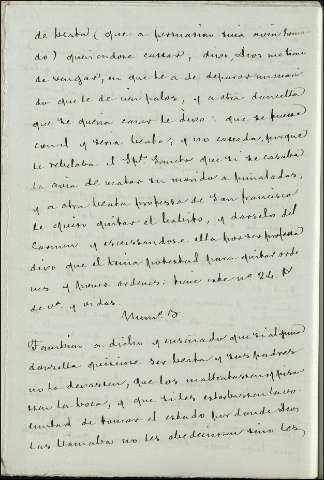 de beata (que a persuasion suia avia tomado
do) queriendose casar, dixo, Dios me tiene
de vengar, en que le a de deparar un marido
do que le de mil palos, y a otra doncella
que se queria casar le dixo: que se fuese
con el y seria beata, y no casada, porque
le rebelaba el Spt. Sancto que si se casaba
la avia de matar su marido a puñaladas,
y a otra beata professa de San francisco
le quiso quitar el habito, y darselo del
Carmen y escussandose ella por ser professa
dixo que el tenia potestad para quitar orde
nes y poner ordenes: tiene este nº 24. 
de vª. y vidas.
Numº
Tambien a dicho y enseñado que si alguna
donzella quisiese ser beata y sus padres
no la dexassen, que los maltratassen y pusie
ssen la boca, y que si les estorbassen la vo
luntad de tomar el estado por donde Dios
las llamaba no les obedeciesen sino les